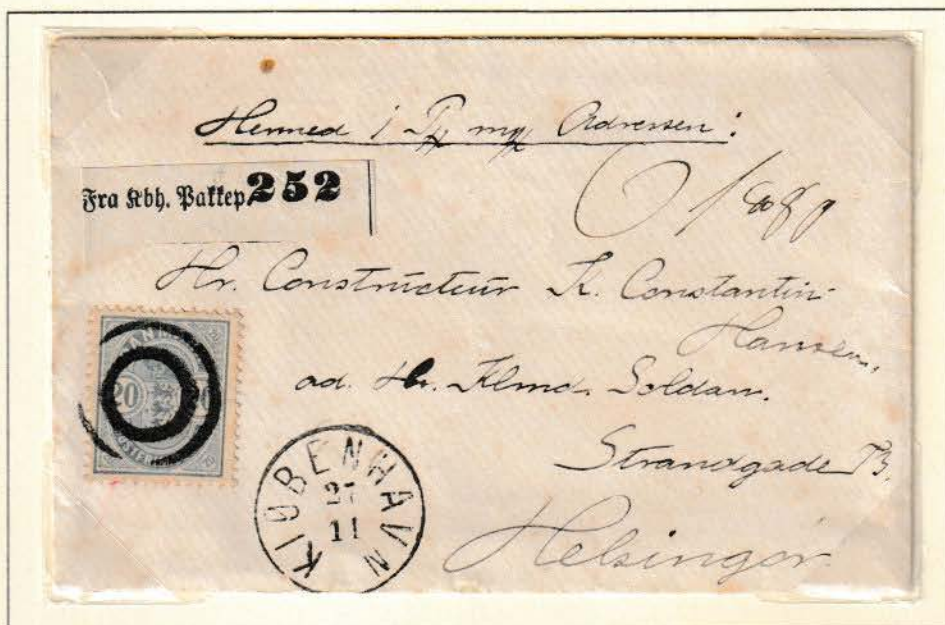 Hermed i Pk mrk Adressen:
Fra Kbh. Pakkep 252
Hr. Constructeur K. Constantin-
Hansen,
ad. Hr. Klmd. Soldan.
Strandgade 73,
Helsingør.
20
KIØBENHAVN
27
11